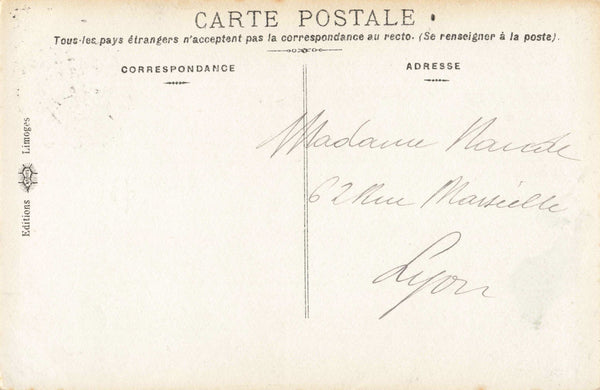 CARTE POSTALE
Tous les pays étrangers n'acceptent pas la correspondance au recto. (Se renseigner à la poste).
CORRESPONDANCE
ADRESSE
Madame
62 Rue Marseille
Lyon
Editions Limoges